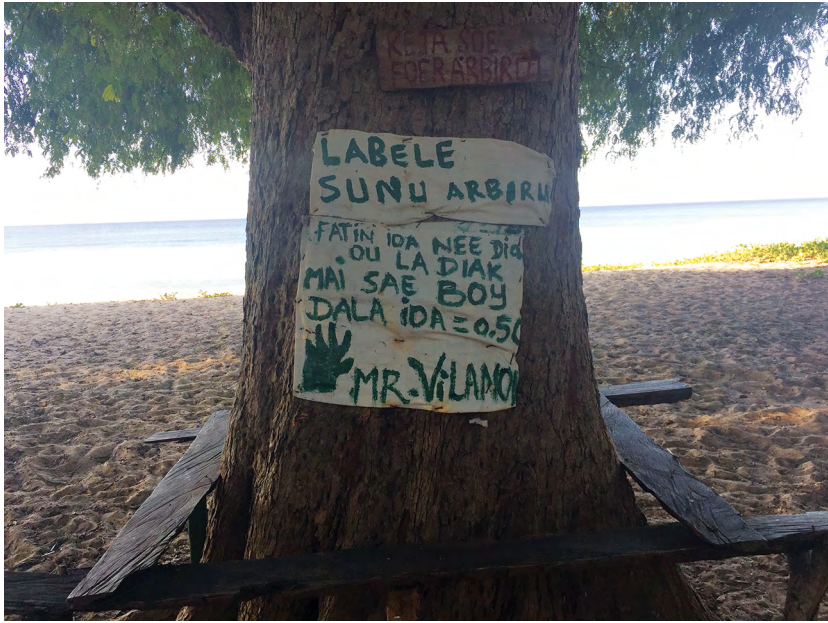 KETA SOE
FOER ARBIRO
LABELE
SUNU ARBIRU
FATIN IDA NEE DIA
OU LA DIAK
MAI SAE BOY
DALA IDA = 0.50
MR. VILANO